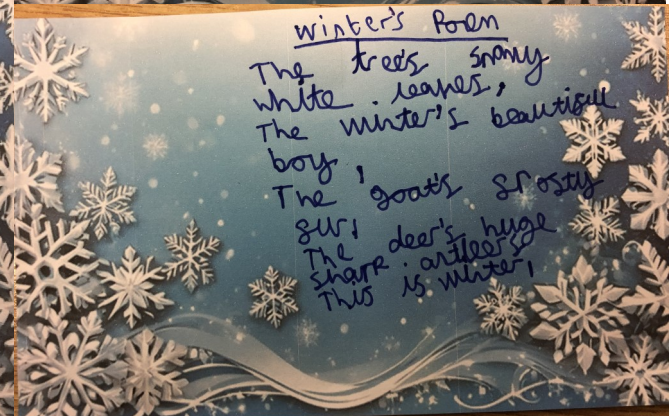 winter's Poem
The tree's snowy
white leaves,
The winter's beautifull
boy,
The goat's frosty
fur,
The deer's huge
sharp antleers
This is winter,